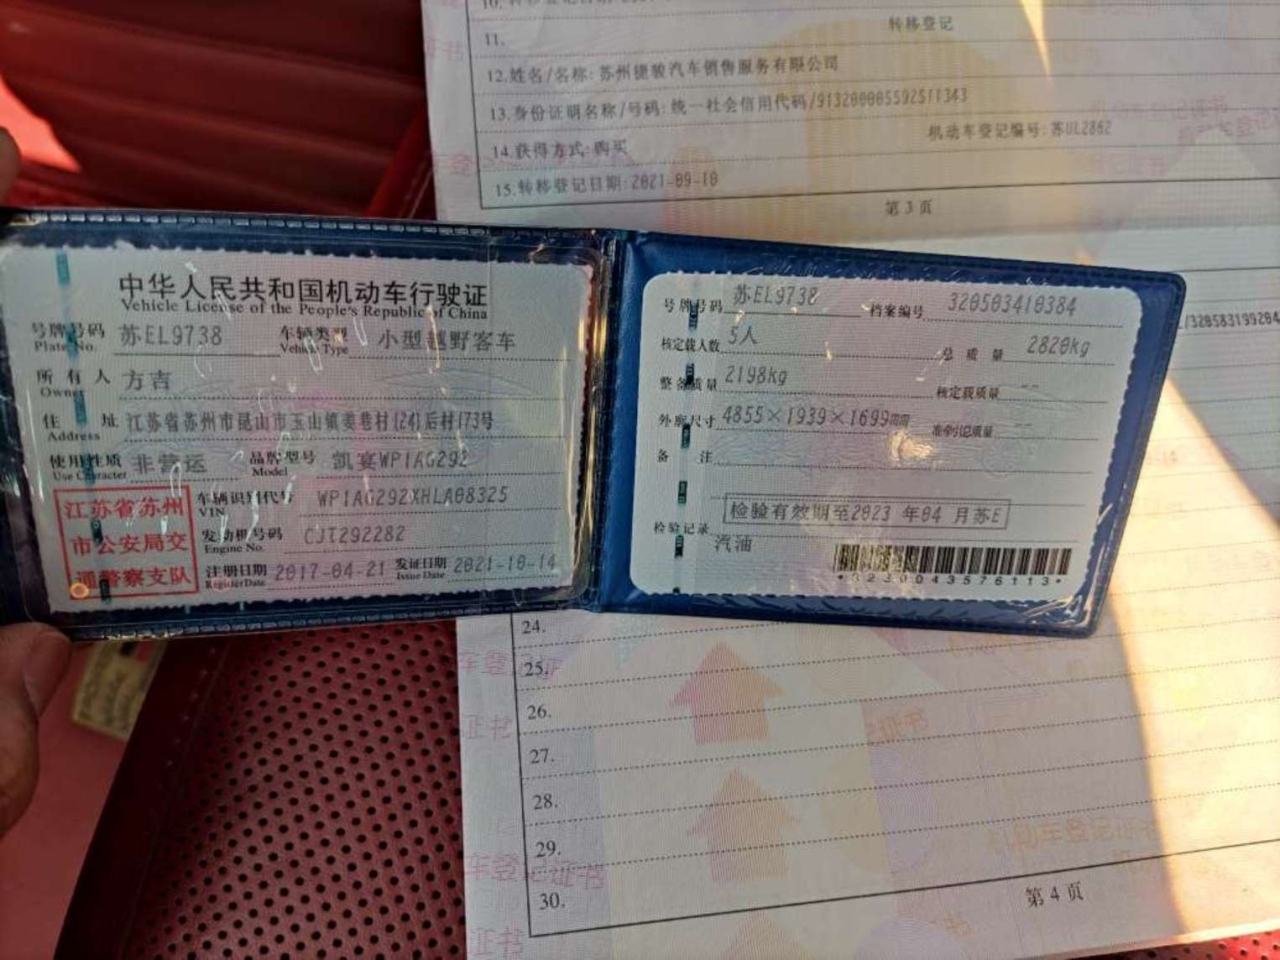 转移登记
11.
12.姓名/名称: 苏州捷骏汽车销售服务有限公司
13.身份证明名称/号码: 统一社会信用代码/913200005592511343
机动车登记编号: 苏UL2862
14.获得方式: 购买
15.转移登记日期: 2021-09-10
第 3 页
中华人民共和国机动车行驶证
Vehicle License of the People's Republic of China
号牌号码 苏EL9738 车辆类型 小型越野客车
Plate No. Vehicle Type
所有人 方吉
Owner
住 址 江苏省苏州市昆山市玉山镇姜巷村(24)后村173号
Address
使用性质 非营运 品牌型号 凯宴WP1AG292
Use Character Model
江苏省苏州
市公安局交
通警察支队
车辆识别代号 WP1AG292XHLA08325
VIN
发动机号码 CJT292282
Engine No.
注册日期 2017-04-21 发证日期 2021-10-14
Register Date Issue Date
号牌号码 苏EL9738 档案编号 320503410384
核定载人数 5人 总质量 2820kg
整备质量 2198kg 核定载质量 --
外廓尺寸 4855×1939×1699mm 准牵引总质量 --
备 注
检验有效期至2023 年04 月苏E
检验记录
汽油
*3230043576113*
24.
25.
26.
27.
28.
29.
30.
第 4 页